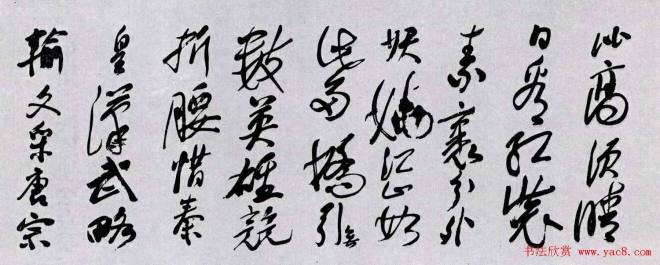 比高須晴
日看紅裝
素裹分外
妖嬈江山如
此多嬌引無
數英雄競
折腰惜秦
皇漢武略
輸文采唐宗
书法欣赏 www.yac8.com